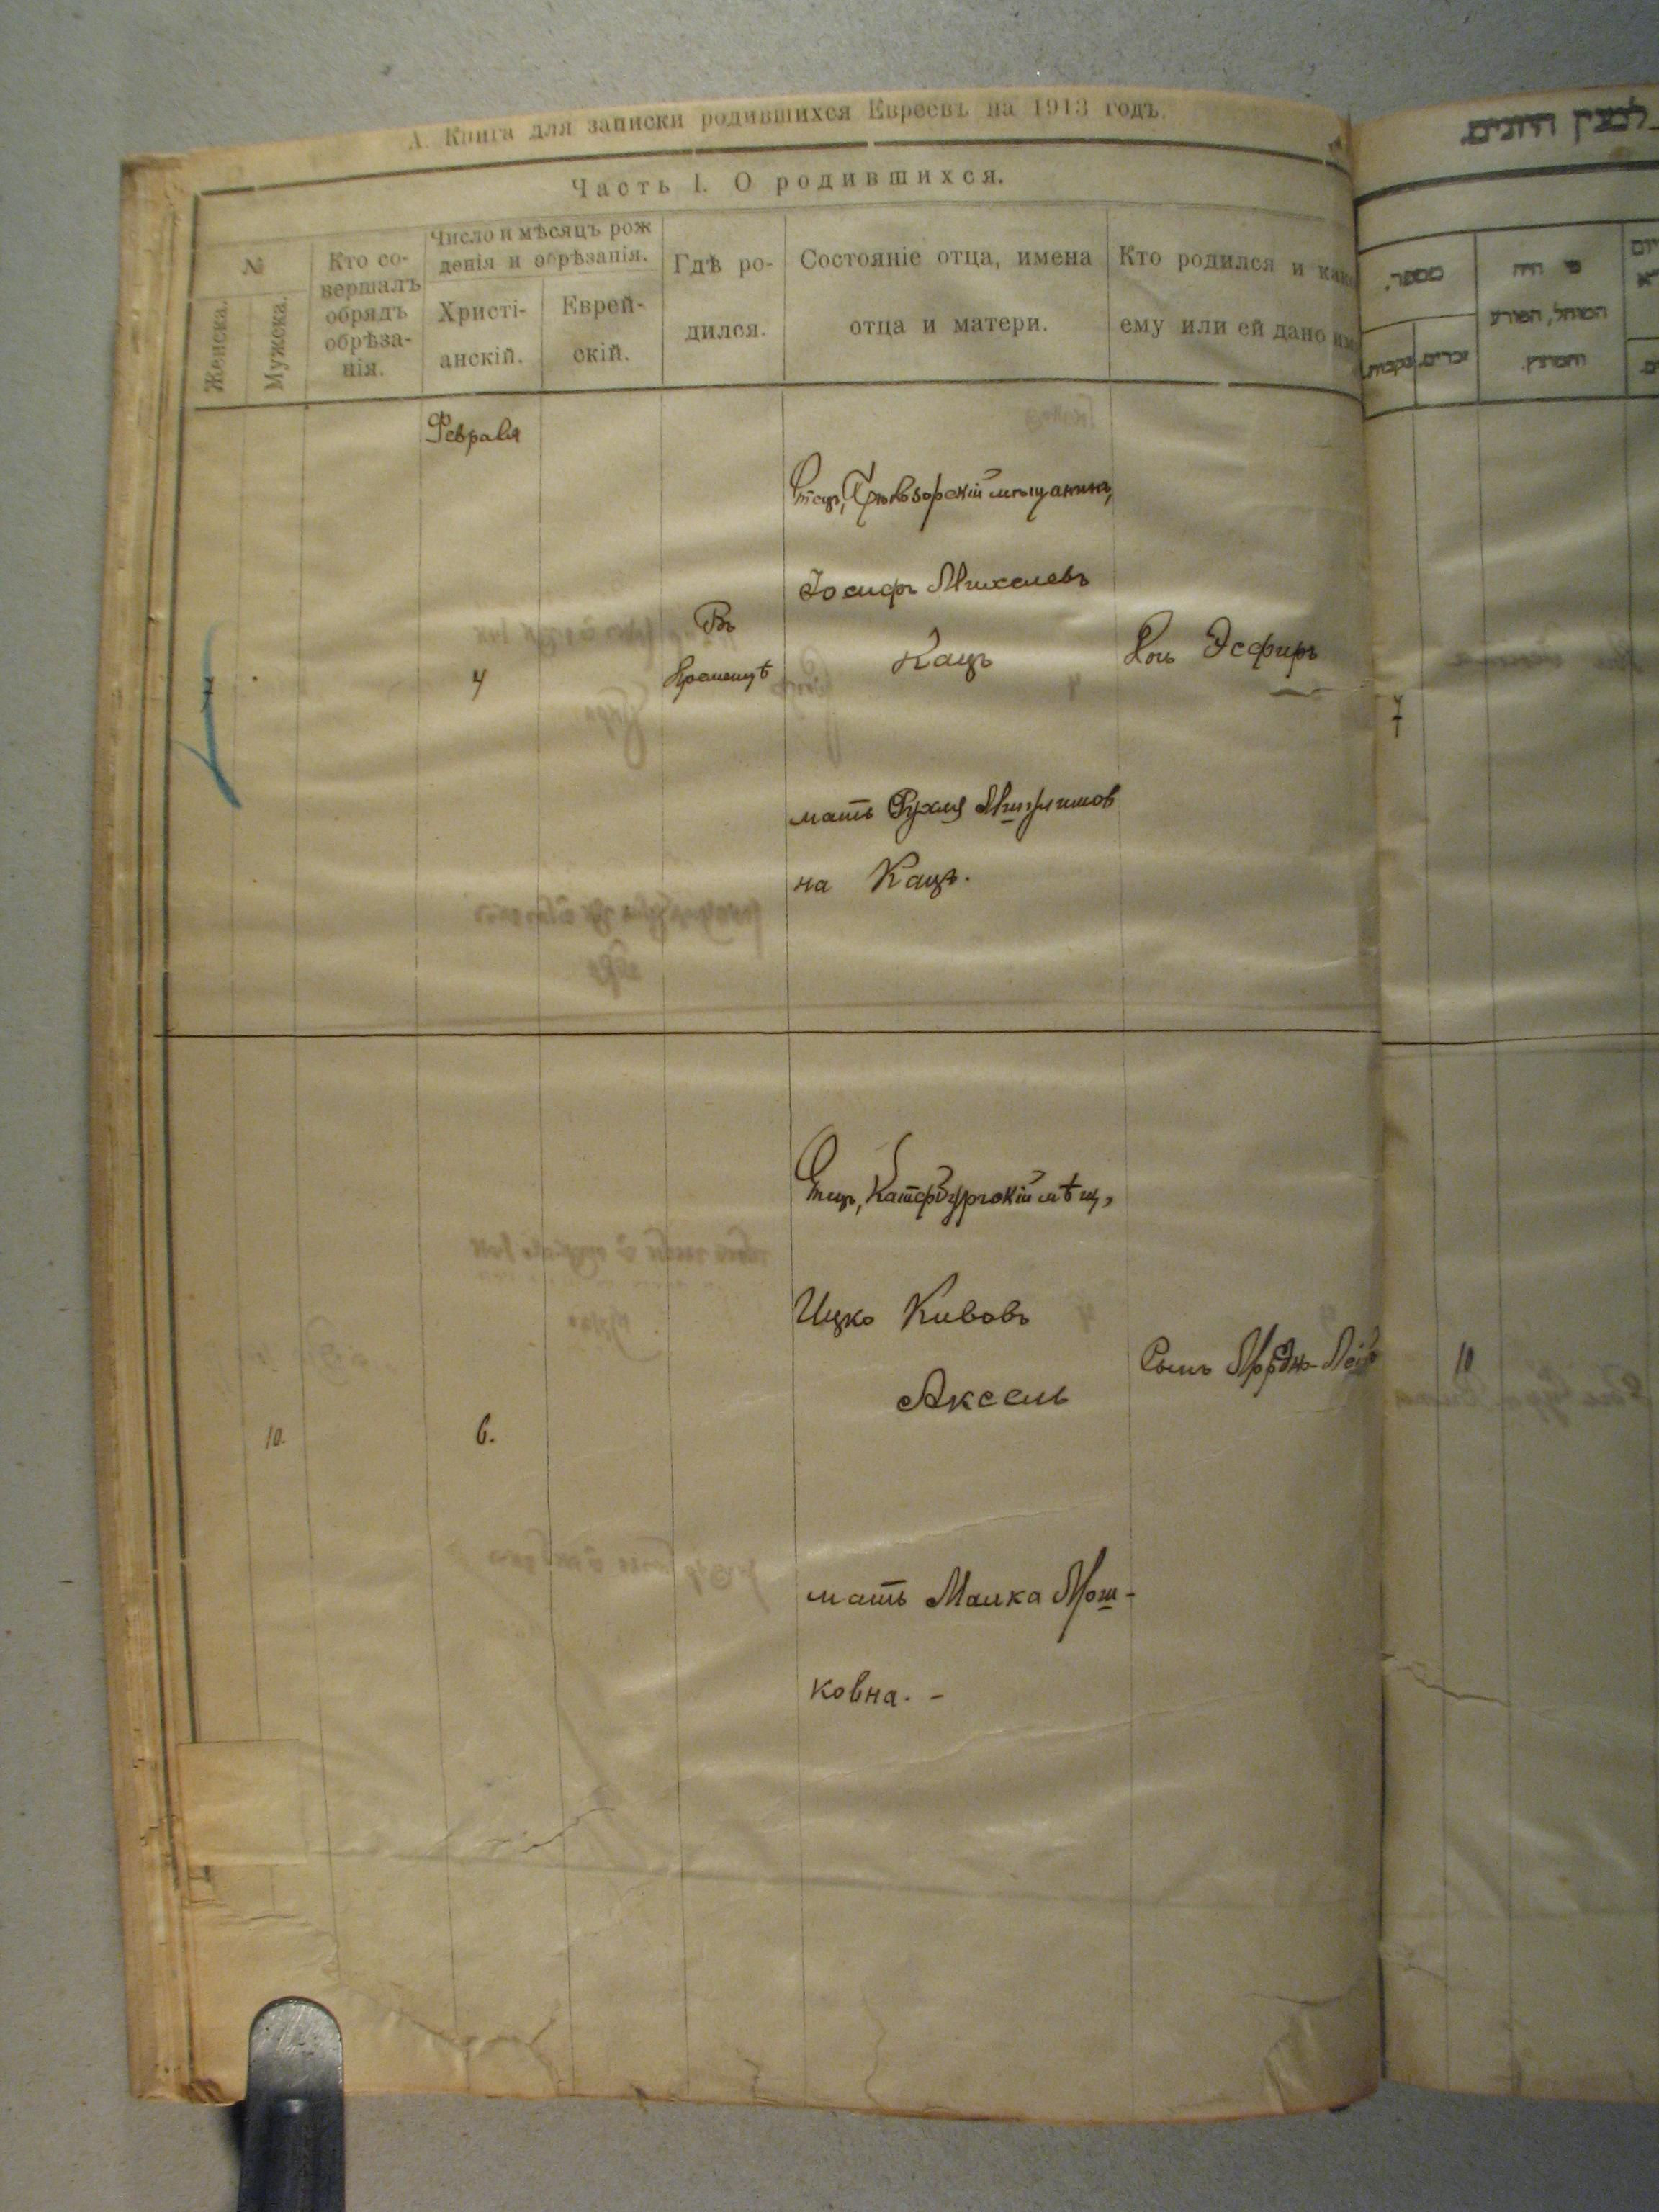 А. Книга для записки родившихся Евреевъ на 1913 годъ.
Часть I. О родившихся.
№
Женска.
Мужска.
Кто со-
вершалъ
обрядъ
обрѣза-
нія.
Число и мѣсяцъ рож
денія и обрѣзанія.
Христі-
анскій.
Еврей-
скій.
Гдѣ ро-
дился.
Состояніе отца, имена
отца и матери.
Кто родился и как
ему или ей дано им
Февраля
4
Въ
Кременцѣ
Отецъ, мѣщанинъ,
Іосифъ Михелевъ
Кацъ
мать Рухля
на Кацъ.
Дочь Эсфирь
10.
6.
Отецъ, Катербургскій мѣщ,
Ицко Кивовъ
Аксель
мать Малка Мош-
ковна. -
Сынъ
מספר.
זכרים.
נקבות.
מי היה
המוהל, הפורע
והמוצץ.
10